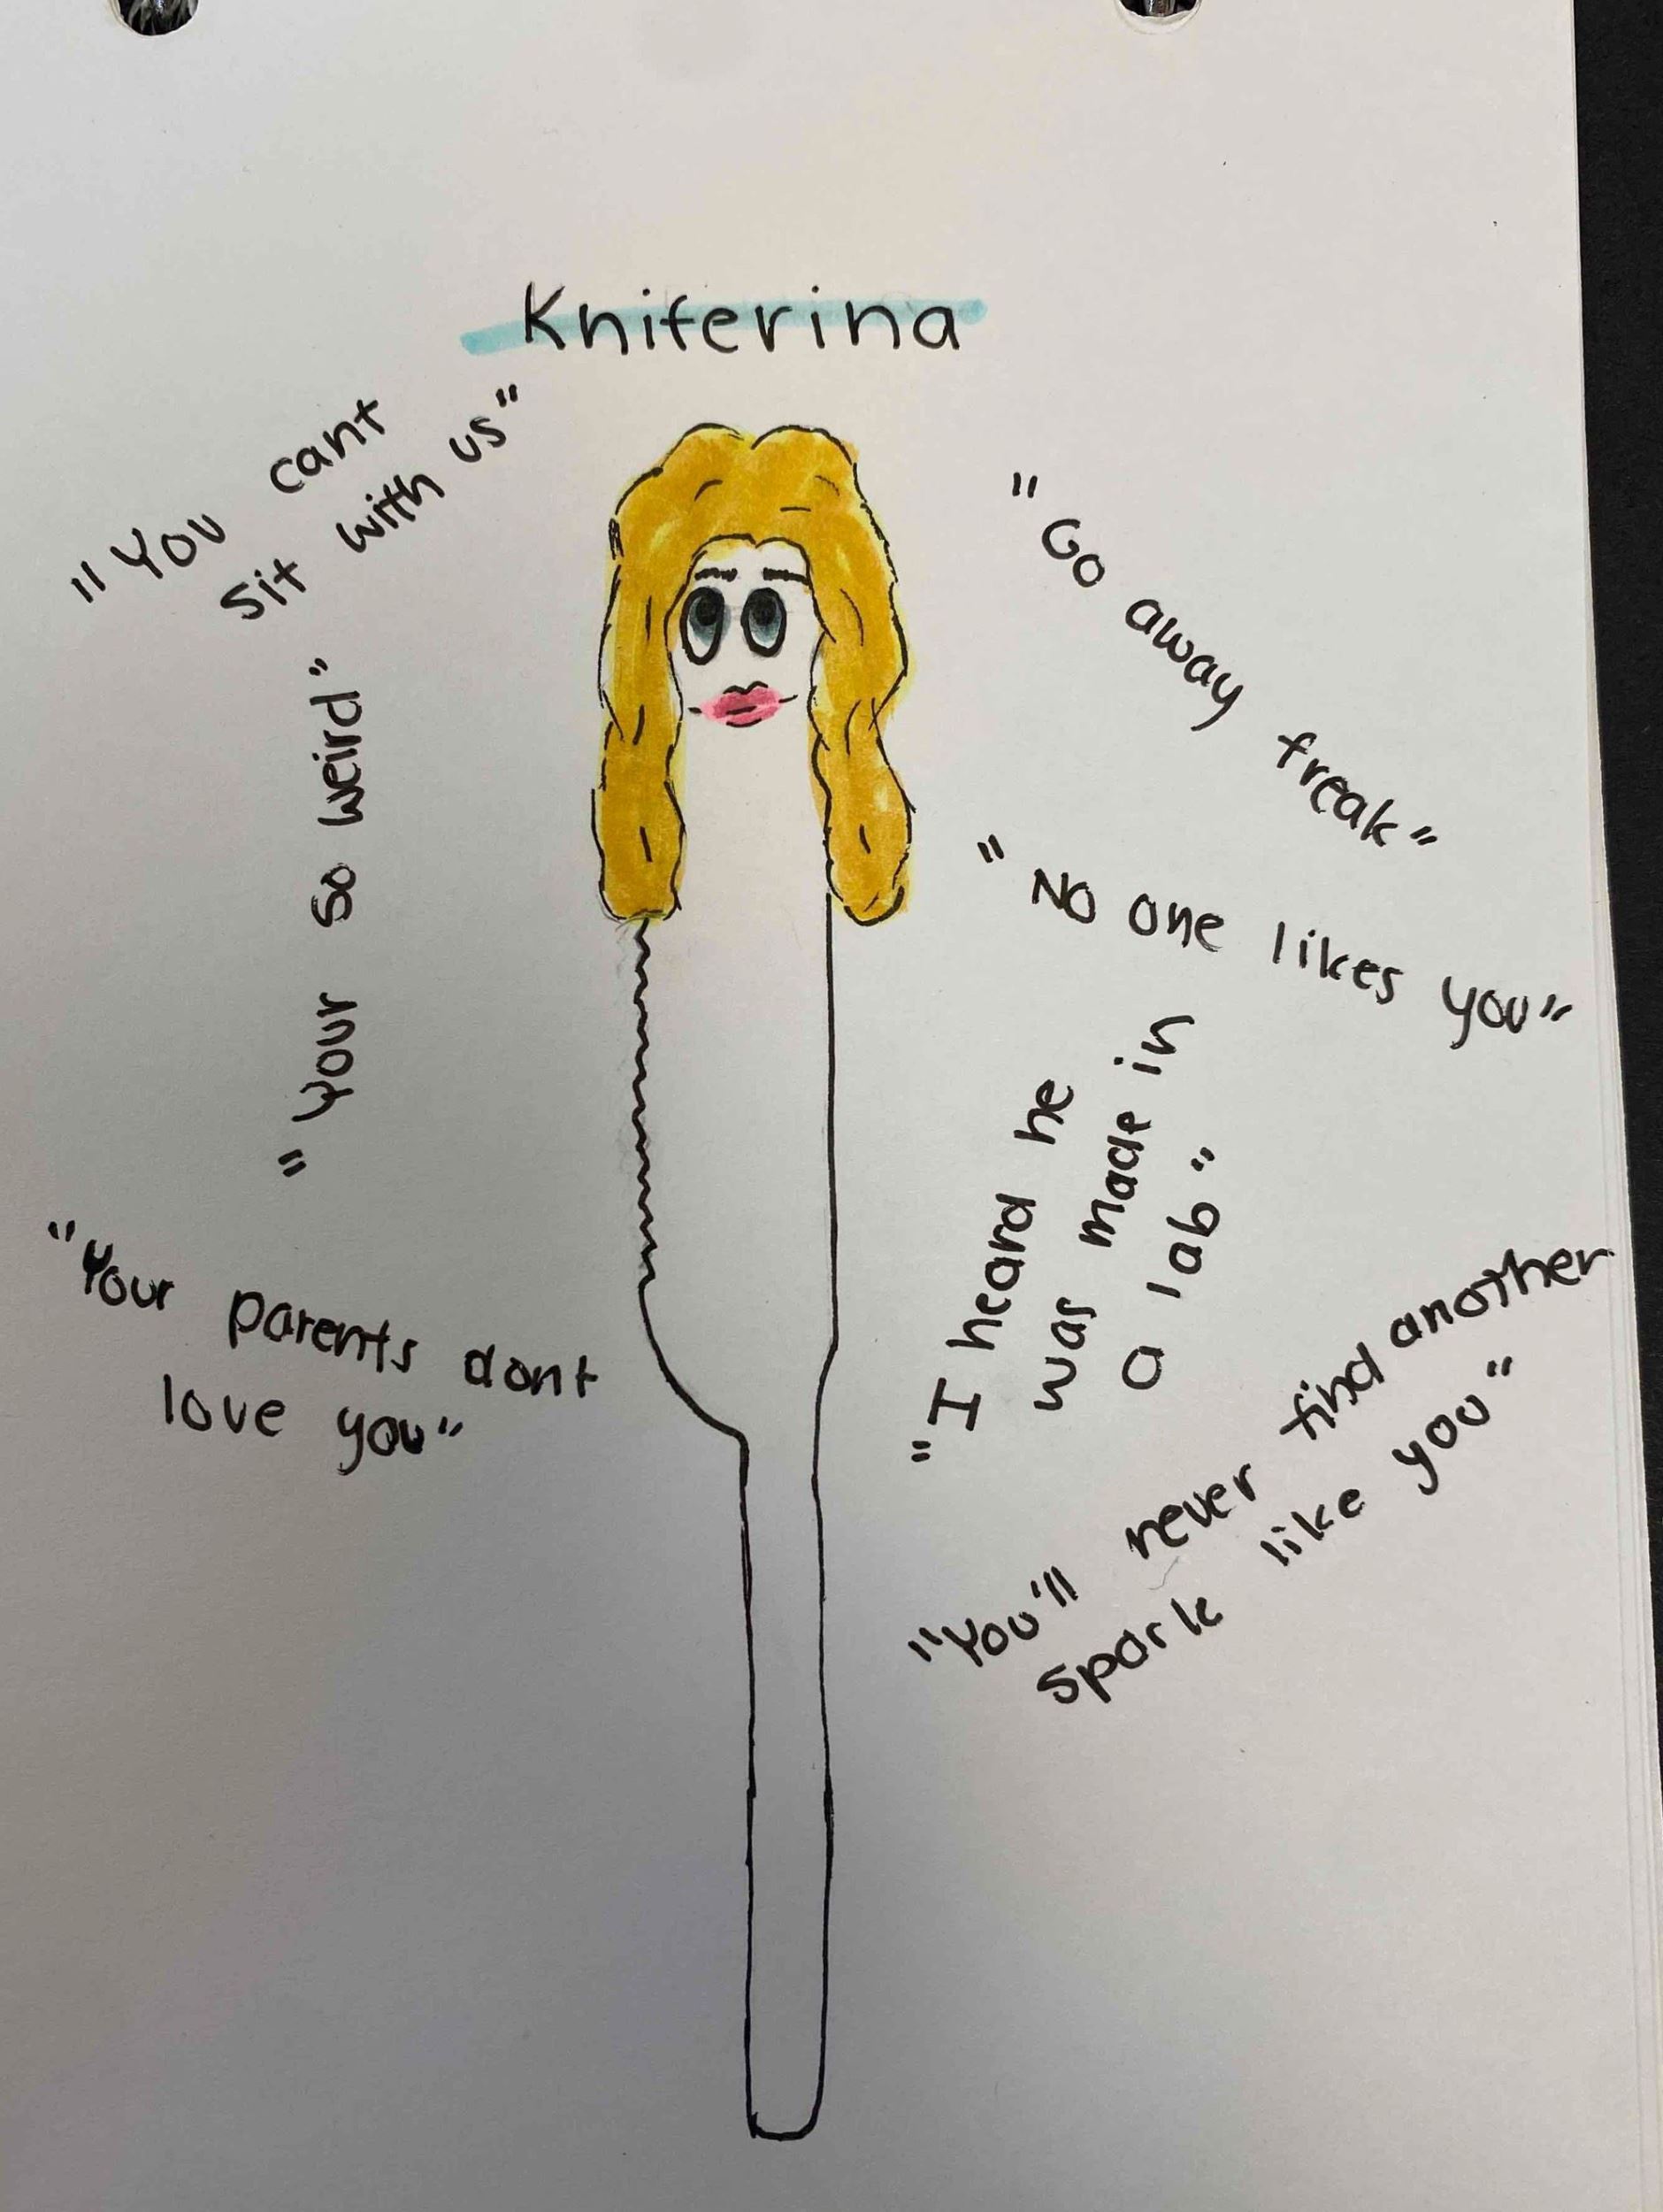 Kniferina
"You cant
sit with us"
"Go away freak"
"Your so weird"
"No one likes you"
"I heard he
was made in
a lab"
"Your parents dont
love you"
"You'll never find another
spork like you"